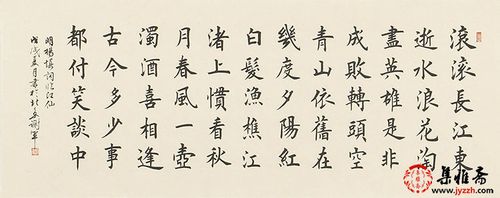 滾滾長江東
逝水浪花淘
盡英雄是非
成敗轉頭空
青山依舊在
幾度夕陽紅
白髮漁樵江
渚上慣看秋
月春風一壺
濁酒喜相逢
古今多少事
都付笑談中
明楊慎詞臨江仙
戊戌夏月書於北京謝軍
集雅斋
www.jyzzh.com